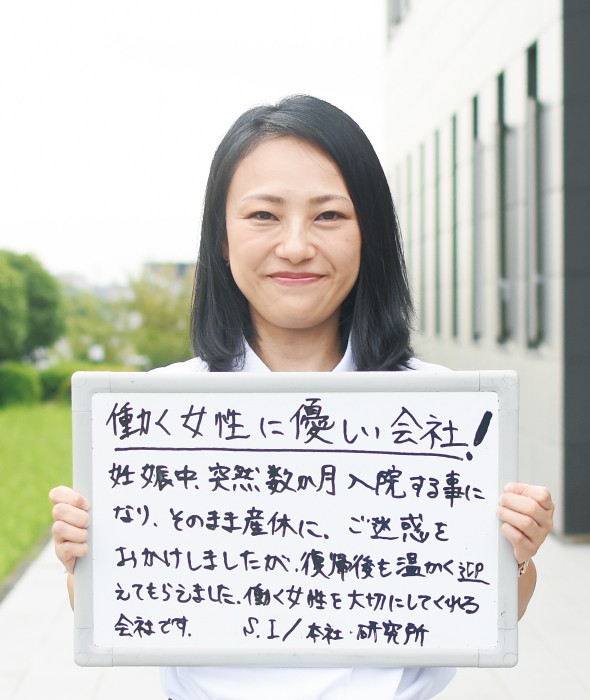 働く女性に優しい会社!
妊娠中、突然数か月入院する事に
なり、そのまま産休に。ご迷惑を
おかけしましたが、復帰後も温かく迎
えてもらえました。働く女性を大切にしてくれる
会社です。 S.I/本社・研究所